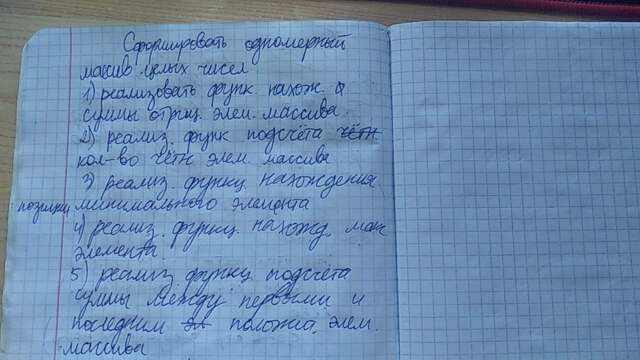 Сформировать одномерный
массив целых чисел
1) реализовать функ. нахож.
суммы отриц. элем. массива
2) реализ. функ подсчёта чётн
кол-во чётн элем. массива
3 реализ. функц нахождения
позиции минимального элемента
4) реализ. функц. нахожд. мак
элемента
5) реализ функц подсчёта
суммы между первыми и
последним эл положит. элем.
массива